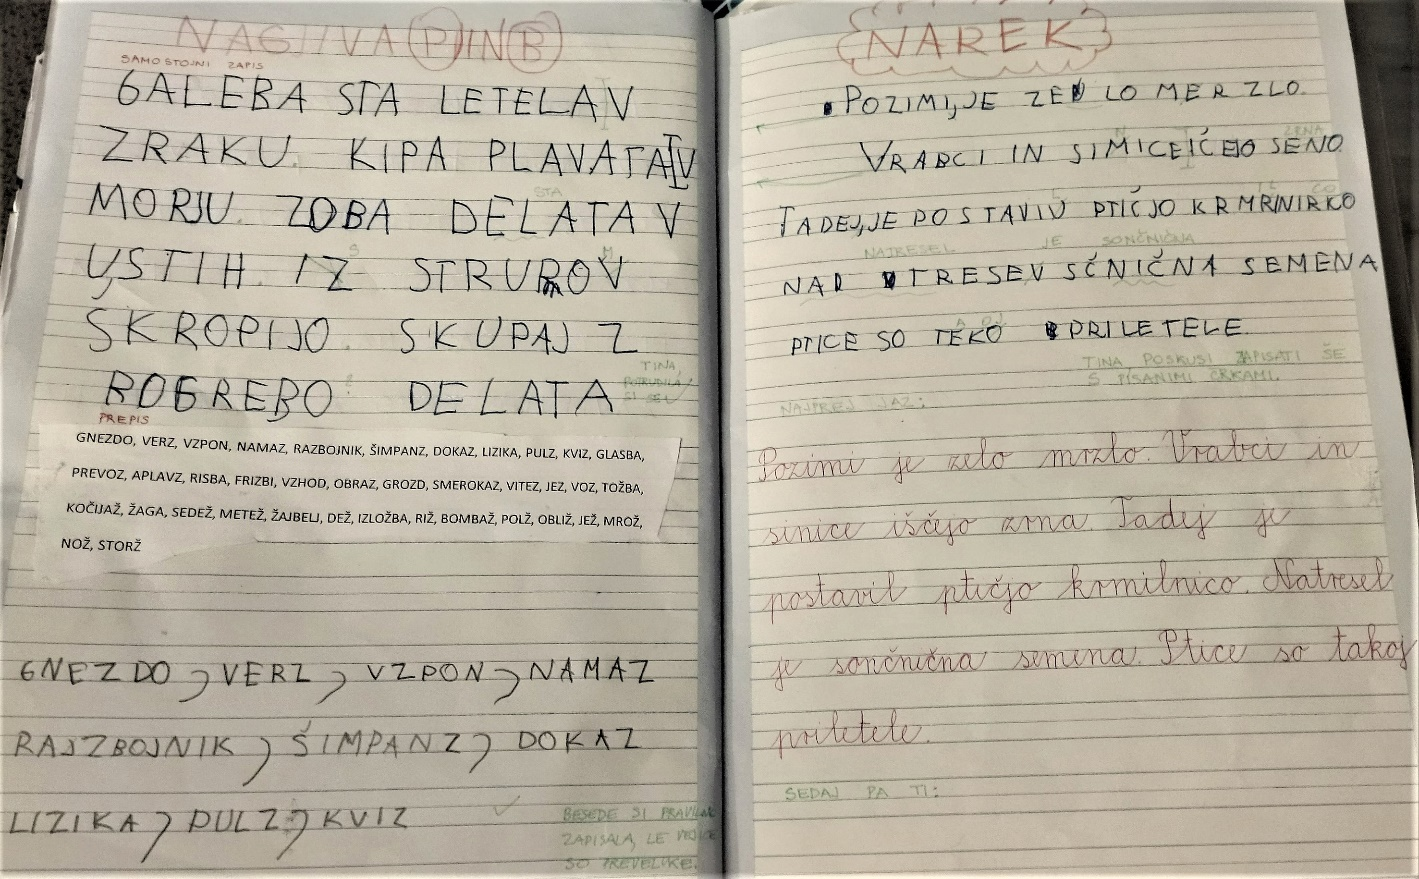 NAGIIVA P IN B
SAMOSTOJNI ZAPIS
GALEBA STA LETELA V
ZRAKU. KIPA PLAVATA V
MORJU. ZOBA DELATA V
STA
USTIH. IZ STRUROV
S
M
SKROPIJO. SKUPAJ Z
ROGREBO DELATA
TINA,
POTRUDILA
SI SE!
PREPIS
GNEZDO, VERZ, VZPON, NAMAZ, RAZBOJNIK, ŠIMPANZ, DOKAZ, LIZIKA, PULZ, KVIZ, GLASBA,
PREVOZ, APLAVZ, RISBA, FRIZBI, VZHOD, OBRAZ, GROZD, SMEROKAZ, VITEZ, JEZ, VOZ, TOŽBA,
KOČIJAŽ, ŽAGA, SEDEŽ, METEŽ, ŽAJBELJ, DEŽ, IZLOŽBA, RIŽ, BOMBAŽ, POLŽ, OBLIŽ, JEŽ, MROŽ,
NOŽ, STORŽ
GNEZDO, VERZ, VZPON, NAMAZ
RAJZBOJNIK, ŠIMPANZ, DOKAZ
LIZIKA, PULZ, KVIZ
BESEDE SI PRAVILNO
ZAPISALA, LE
SO PREVELIKE.
NAREK
POZIMI, JE ZELO MERZLO.
ZRNA
VRABCI IN SIMICE IČEJO SENO
TADEJ, JE POSTAVIU PTIČJO KRMRNIRKO
NATRESEL JE SONČNIČNA
NAD TRESEV SČNIČNA SEMENA
PTICE SO TEKO PRILETELE.
TINA POSKUSI ZAPISATI ŠE
S PISANIMI ČRKAMI.
NAJPREJ JAZ:
Pozimi je zelo mrzlo. Vrabci in
sinice iščejo zrna. Tadej je
postavil ptičjo krmilnico. Natresel
je sončnična semena. Ptice so takoj
priletele.
SEDAJ PA TI: